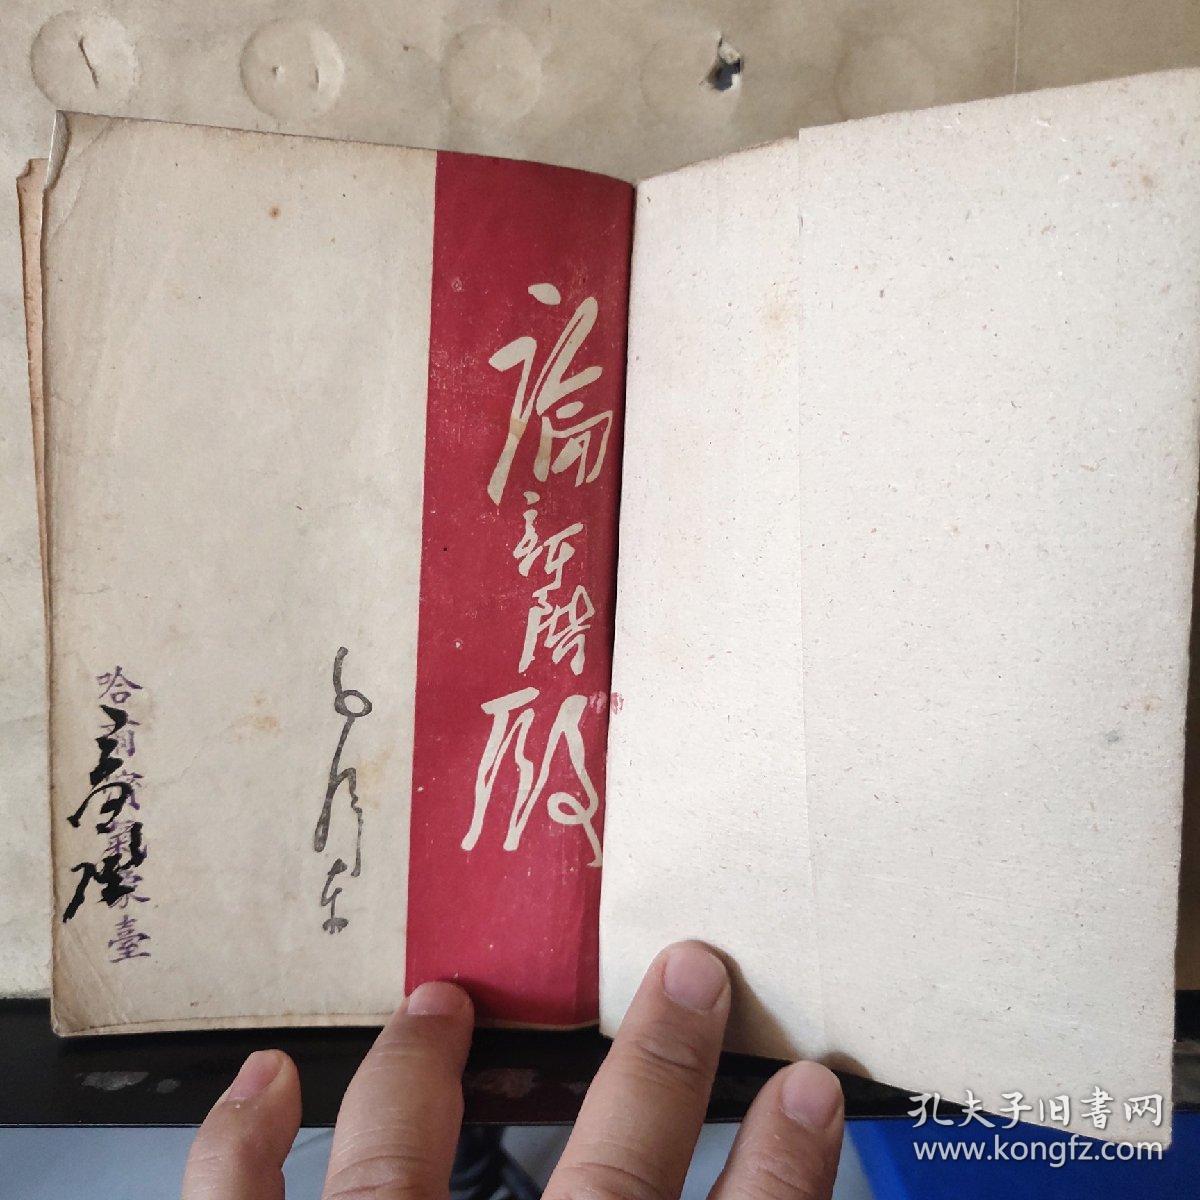 論新階段
毛澤東
哈市氣象臺
孔夫子旧書网
www.kongfz.com